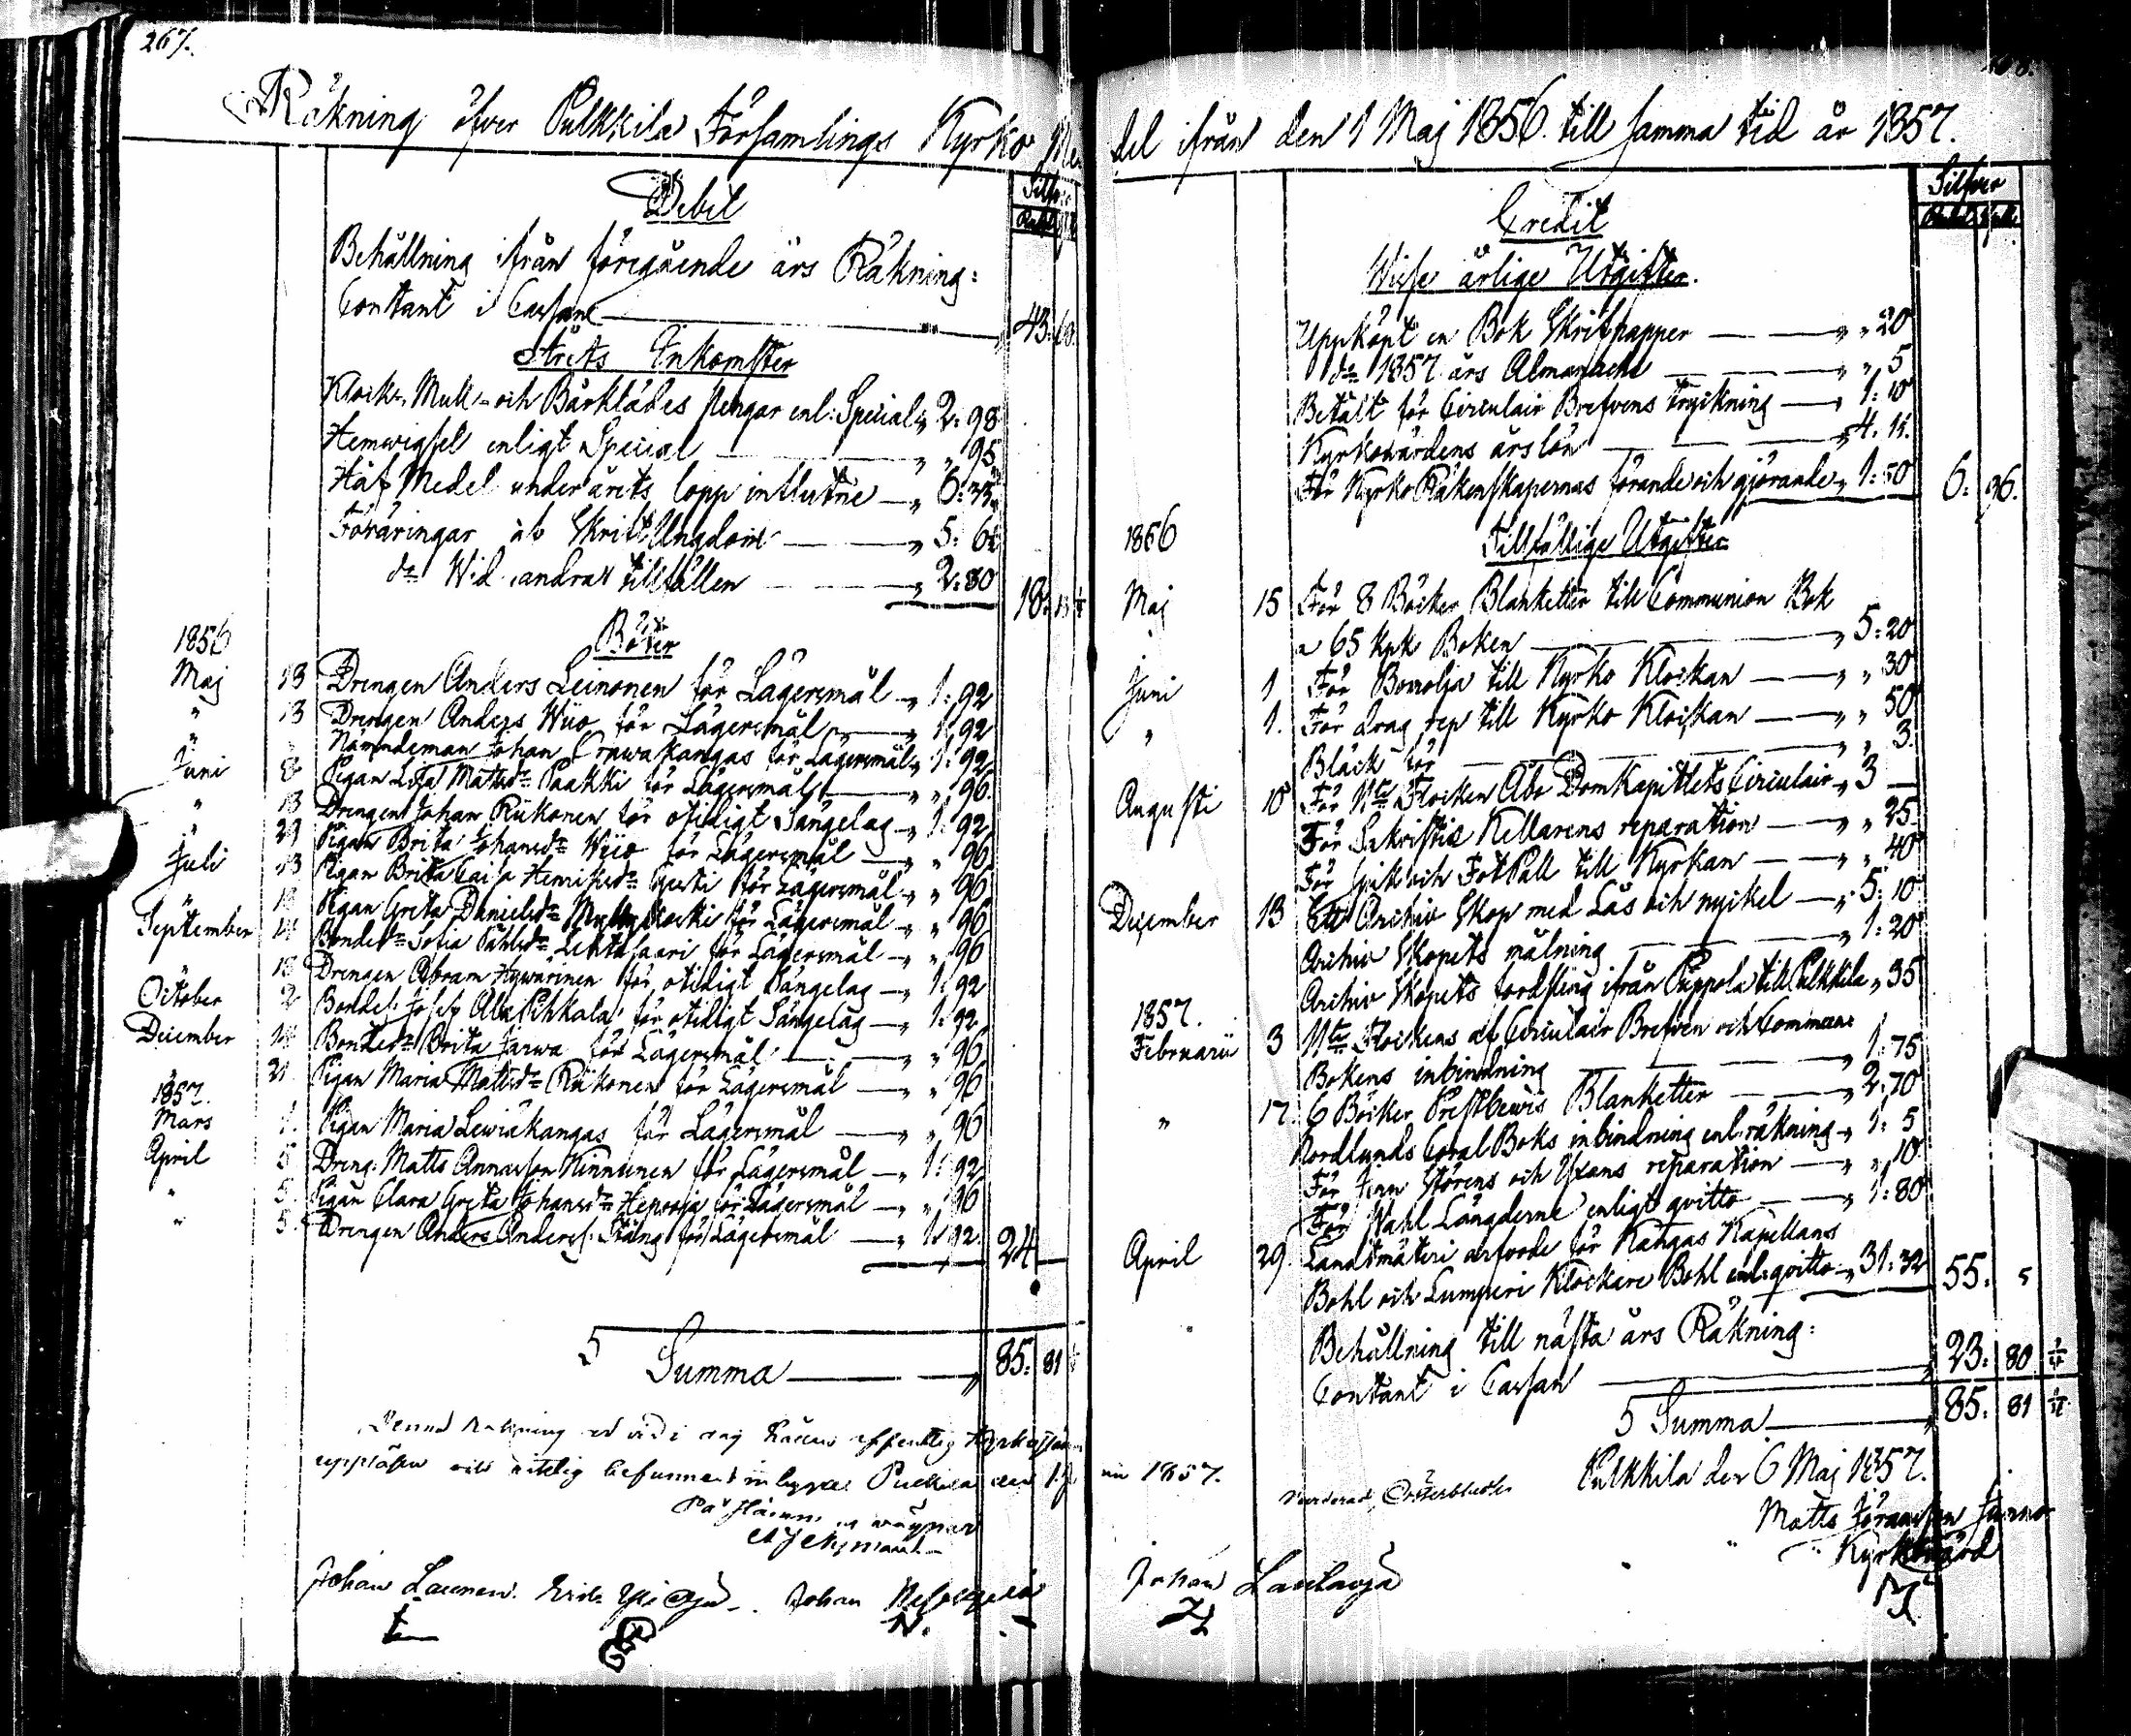 267.
Räkning öfver Pulkkila Församlings Kyrko Me
Debet
Silfver
Behållning ifrån föregående års Räkning:
Contant i Cassan — 43: 68
Årets Inkomster
Klock-, Mull- och Bårklädes pengar enl: Special „ 2: 98
Hemvigsel enligt Special — „ „ 95
Håf Medel under årets lopp influtne — „ 6:
Föräringar af Skrift Ungdom — „ 5: 6
do Wid andra tillfällen — „ 2: 80 18: 13
1856 Böter
Maj 13 Drengen Anders Leinonen för Lägersmål — „ 1: 92
„ 13 Drengen Anders Wiio för Lägersmål — „ 1: 92
„ Nämndeman Johan för Lägersmål „ 1: 92
Juni 8 Pigan Lisa Mattsdr Paakki för Lägersmål — „ „ 96
„ 13 Drengen Johan Riikonen för otidigt Sängelag — „ 1: 92
29 Pigan Brita Johansdr Wiio för Lägersmål — „ „ 96
Juli 13 Pigan Brita Caisa Henriksdr för Lägersmål — „ „ 96
„ 13 Pigan Greta Danielsdr för Lägersmål — „ „ 96
September 14 Bondedr Sofia Påhlsdr Lehtosaari för Lägersmål — „ „ 96
„ 18 Drengen Abram Hywärinen för otidigt Sängelag — „ 1: 92
October 2 Bondes: Josef Ala Pihkala för otidigt Sängelag — „ 1: 92
December 14 Bondedr Brita Jarwa för Lägersmål — „ „ 96
21 Pigan Maria Mattsdr Riikonen för Lägersmål — „ „ 96
1857.
Mars 1. Pigan Maria Lewiäkangas för Lägersmål — „ „ 96
April 5 Dreng: Matts Annasson Kinnunen för Lägersmål — „ 1: 92
„ 5. Pigan Clara Greta Johansdr Hepooja för Lägersmål — „ „ 96
„ 5. Drengen Anders Anderss: Stång för Lägersmål — „ 1: 92 24 —
Summa — „ 85: 81
Denna Räkning
upplåsen och riktig befunnen Pulkkila den 1
På
Johan Launen. Johan
del ifrån den 1 Maj 1856. till samma tid år 1857.
Silfver
Credit
Wisse årlige Utgifter.
Uppköpt en Bok Skrifpapper — „ „ 20
do 1857 års Almanach — „ „ 5
Betalt för Circulair Brefvens tryckning — „ 1: 10
Kyrkowärdens årslön — „ 4: 11.
För Kyrko Räkenskapernas förande och gjörande „ 1: 50 6: 96.
1856 Tillfällige Utgifter
Maj 15 För 8 Böcker Blanketter till Communion Bok
a 65 kpk Boken — „ 5: 20
Juni 1 För Bomolja till Kyrko Klockan — „ „ 30
„ 1. För drag rep till Kyrko Klockan — „ „ 50
Bläck för — „ „ 3.
Augusti 10 För 11te Flocken Åbo DomKapittlets Circulair „ 3 —
För Sakristie Kellarens reparation — „ „ 25
För Spik och Fot Pall till Kyrkan — „ „ 40
December 13 Ett Archiv Skop med Lås och nyckel — „ 5: 10
Archiv Skopets målning — „ 1: 20
Archiv Skopets fordsling ifrån Pippola till Pulkkila „ 35
1857.
Februarii 3 11te Flockens af Circulair Brefven och
Bokens inbindning — „ 1: 75
„ 17. 6 Böcker Prestbewis Blanketter — „ 2: 70
Nordlunds Coral Boks inbindning enl: räkning „ 1: 5
För Jern Störens och Yxans reparation — „ „ 10
För Wahl Längderne enligt qvitto — „ 1: 80
April 29. Landtmäteri arfvode för Kangas Kapellans
Bohl och Lumperi Klockare Bohl enl: qvitto „ 31: 32 55: 5
Behållning till nästa års Räkning:
Contant i Cassan — „ 23: 80
Summa — „ 85: 81
Pulkkila den 6 Maj 1857.
1857.
Matts
Kyrkowärd
Johan